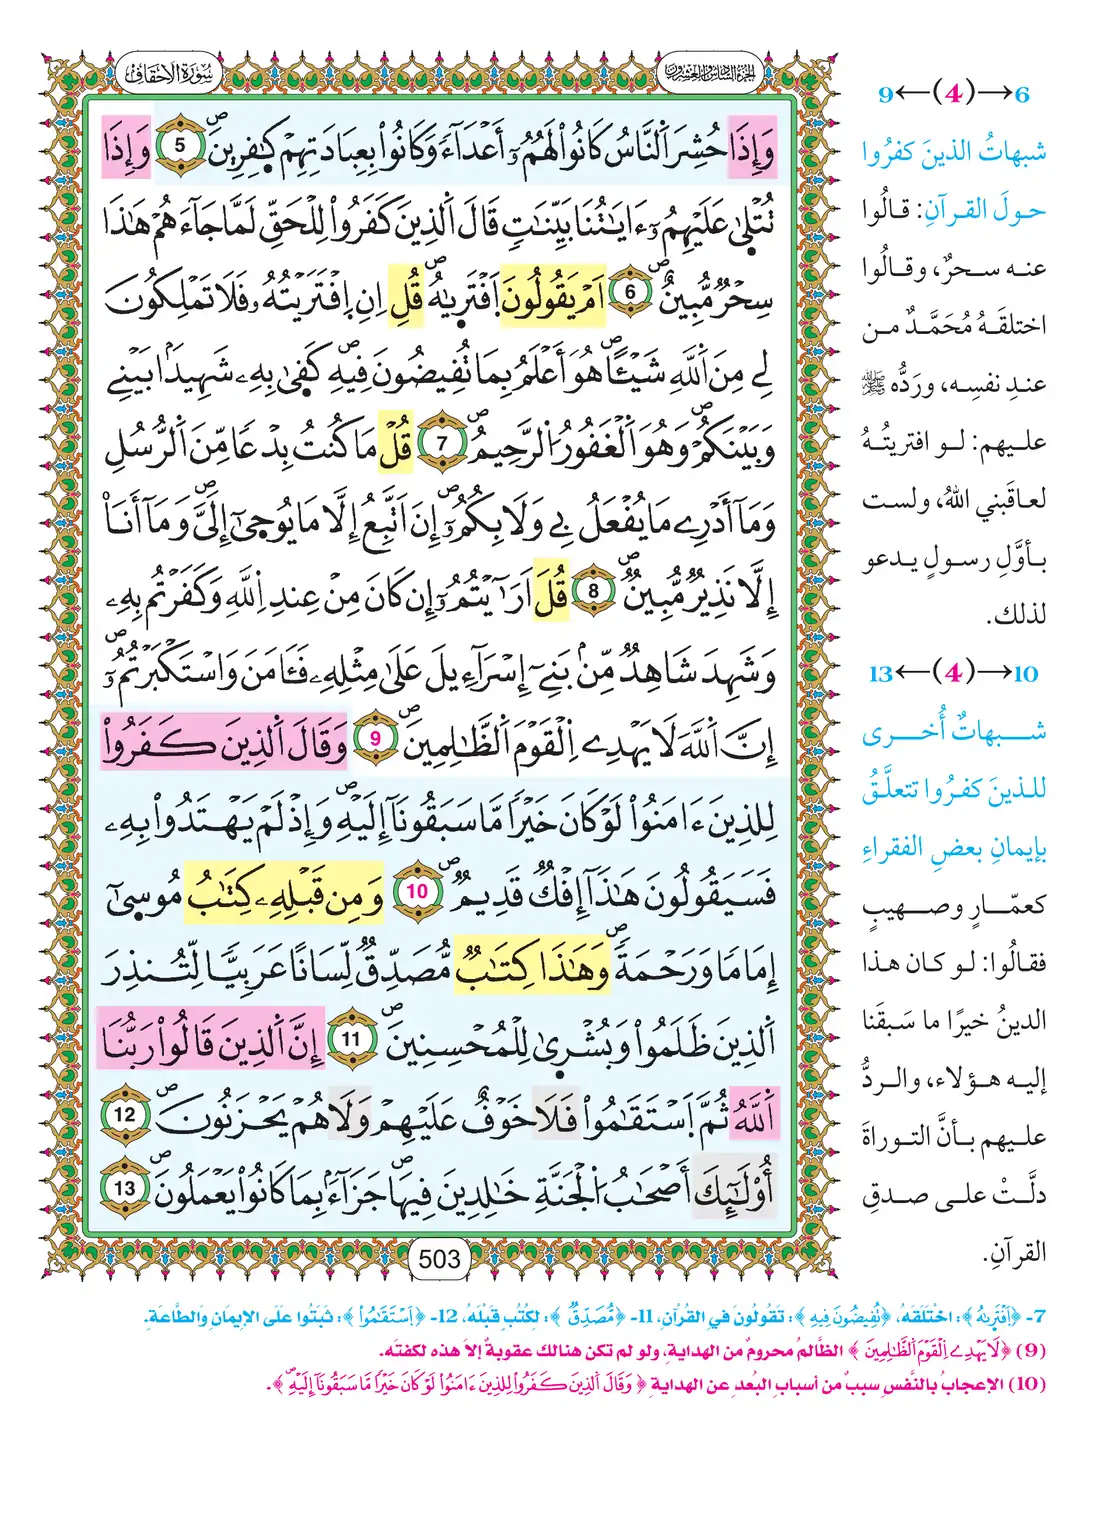 سُورَةُ الأَحْقَافِ
الجُزْءُ السَّادِسُ وَالعِشْرُونَ
وَإِذَا حُشِرَ اَ۬لنَّاسُ كَانُواْ لَهُمُۥٓ أَعْدَآءٗ وَكَانُواْ بِعِبَادَتِهِمْ كٰ۪فِرِينَۖ 5 وَإِذَا
تُتْل۪يٰ عَلَيْهِمُۥٓ ءَايَٰتُنَا بَيِّنَٰتٖ قَالَ اَ۬لذِينَ كَفَرُواْ لِلْحَقِّ لَمَّا جَآءَهُمْ هَٰذَا
سِحْرٞ مُّبِينٌۖ 6 اَمْ يَقُولُونَ اَ۪فْتَر۪يٰهُۖ قُلِ اِنِ اِ۪فْتَرَيْتُهُۥ فَلَا تَمْلِكُونَ
لِے مِنَ اَ۬للَّهِ شَيْـًٔاۖ هُوَ أَعْلَمُ بِمَا تُفِيضُونَ فِيهِۖ كَف۪يٰ بِهِۦ شَهِيداَۢ بَيْنِے
وَبَيْنَكُمْۖ وَهُوَ اَ۬لْغَفُورُ اُ۬لرَّحِيمُۖ 7 قُلْ مَا كُنتُ بِدْعاٗ مِّنَ اَ۬لرُّسُلِ
وَمَآ أَدْرِے مَا يُفْعَلُ بِے وَلَا بِكُمُۥٓۖ إِنَ اَتَّبِعُ إِلَّا مَا يُوح۪يٰٓ إِلَيَّۖ وَمَآ أَنَآ
إِلَّا نَذِيرٞ مُّبِينٞۖ 8 قُلَ اَرَٰٓيْتُمُۥٓ إِن كَانَ مِنْ عِندِ اِ۬للَّهِ وَكَفَرْتُم بِهِۦ
وَشَهِدَ شَاهِدٞ مِّنۢ بَنِےٓ إِسْرَآءِيلَ عَلَىٰ مِثْلِهِۦ فَـَٔامَنَ وَاسْتَكْبَرْتُمُۥٓۖ
إِنَّ اَ۬للَّهَ لَا يَهْدِے اِ۬لْقَوْمَ اَ۬لظَّٰلِمِينَۖ 9 وَقَالَ اَ۬لذِينَ كَفَرُواْ
لِلذِينَ ءَامَنُواْ لَوْ كَانَ خَيْراٗ مَّا سَبَقُونَآ إِلَيْهِۖ وَإِذْ لَمْ يَهْتَدُواْ بِهِۦ
فَسَيَقُولُونَ هَٰذَآ إِفْكٞ قَدِيمٞۖ 10 وَمِن قَبْلِهِۦ كِتَٰبُ مُوس۪يٰٓ
إِمَاماٗ وَرَحْمَةٗۖ وَهَٰذَا كِتَٰبٞ مُّصَدِّقٞ لِّسَاناً عَرَبِيّاٗ لِّتُنذِرَ
اَ۬لذِينَ ظَلَمُواْ وَبُشْر۪يٰ لِلْمُحْسِنِينَۖ 11 إِنَّ اَ۬لذِينَ قَالُواْ رَبُّنَا
اَ۬للَّهُ ثُمَّ اَ۪سْتَقَٰمُواْ فَلَا خَوْفٌ عَلَيْهِمْ وَلَا هُمْ يَحْزَنُونَۖ 12
أُوْلَٰٓئِكَ أَصْحَٰبُ اُ۬لْجَنَّةِ خَٰلِدِينَ فِيهَاۖ جَزَآءَۢ بِمَا كَانُواْ يَعْمَلُونَۖ 13
503
9←(4)→6
شبهاتُ الذينَ كفرُوا
حولَ القرآنِ: قالُوا
عنه سحرٌ، وقالُوا
اختلقَهُ مُحَمَّدٌ من
عندِ نفسِه، ورَدُّه ﷺ
عليهم: لو افتريتُهُ
لعاقَبني اللهُ، ولست
بأوَّلِ رسولٍ يدعو
لذلك.
13←(4)→10
شبهاتٌ أُخرى
للذينَ كفرُوا تتعلَّقُ
بإيمانِ بعضِ الفقراءِ
كعمَّارٍ وصهيبٍ
فقالُوا: لو كان هذا
الدينُ خيرًا ما سَبقَنا
إليه هؤلاء، والردُّ
عليهم بأنَّ التوراةَ
دلَّتْ على صدقِ
القرآنِ.
7- ﴿اَ۪فْتَر۪يٰهُ﴾: اخْتَلَقَهُ، ﴿تُفِيضُونَ فِيهِ﴾: تَقُولُونَ فِي القُرْآنِ، 11- ﴿مُّصَدِّقٞ﴾: لِكُتُبٍ قَبْلَهُ، 12- ﴿اَ۪سْتَقَٰمُواْ﴾: ثَبَتُوا عَلَى الإِيمَانِ وَالطَّاعَةِ.
(9) ﴿لَا يَهْدِے اِ۬لْقَوْمَ اَ۬لظَّٰلِمِينَ﴾ الظَّالمُ محرومٌ من الهدايةِ، ولو لم تكن هنالك عقوبةٌ إلا هذه لكفته.
(10) الإعجابُ بالنَّفسِ سببٌ من أسبابِ البُعدِ عن الهدايةِ ﴿وَقَالَ اَ۬لذِينَ كَفَرُواْ لِلذِينَ ءَامَنُواْ لَوْ كَانَ خَيْراٗ مَّا سَبَقُونَآ إِلَيْهِۖ﴾.